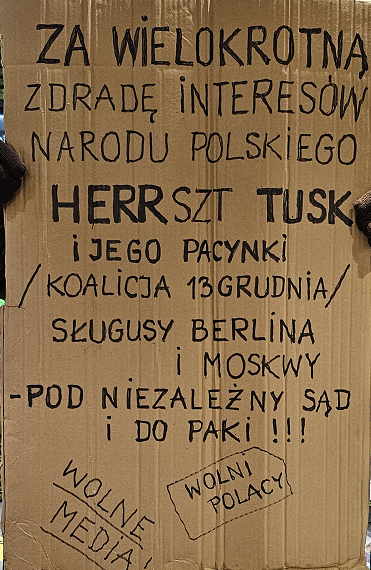 ZA WIELOKROTNĄ
ZDRADĘ INTERESÓW
NARODU POLSKIEGO
HERRSZT TUSK
I JEGO PACYNKI
/KOALICJA 13 GRUDNIA/
SŁUGUSY BERLINA
I MOSKWY
-POD NIEZALEŻNY SĄD
I DO PAKI !!!
WOLNE
MEDIA!
WOLNI
POLACY